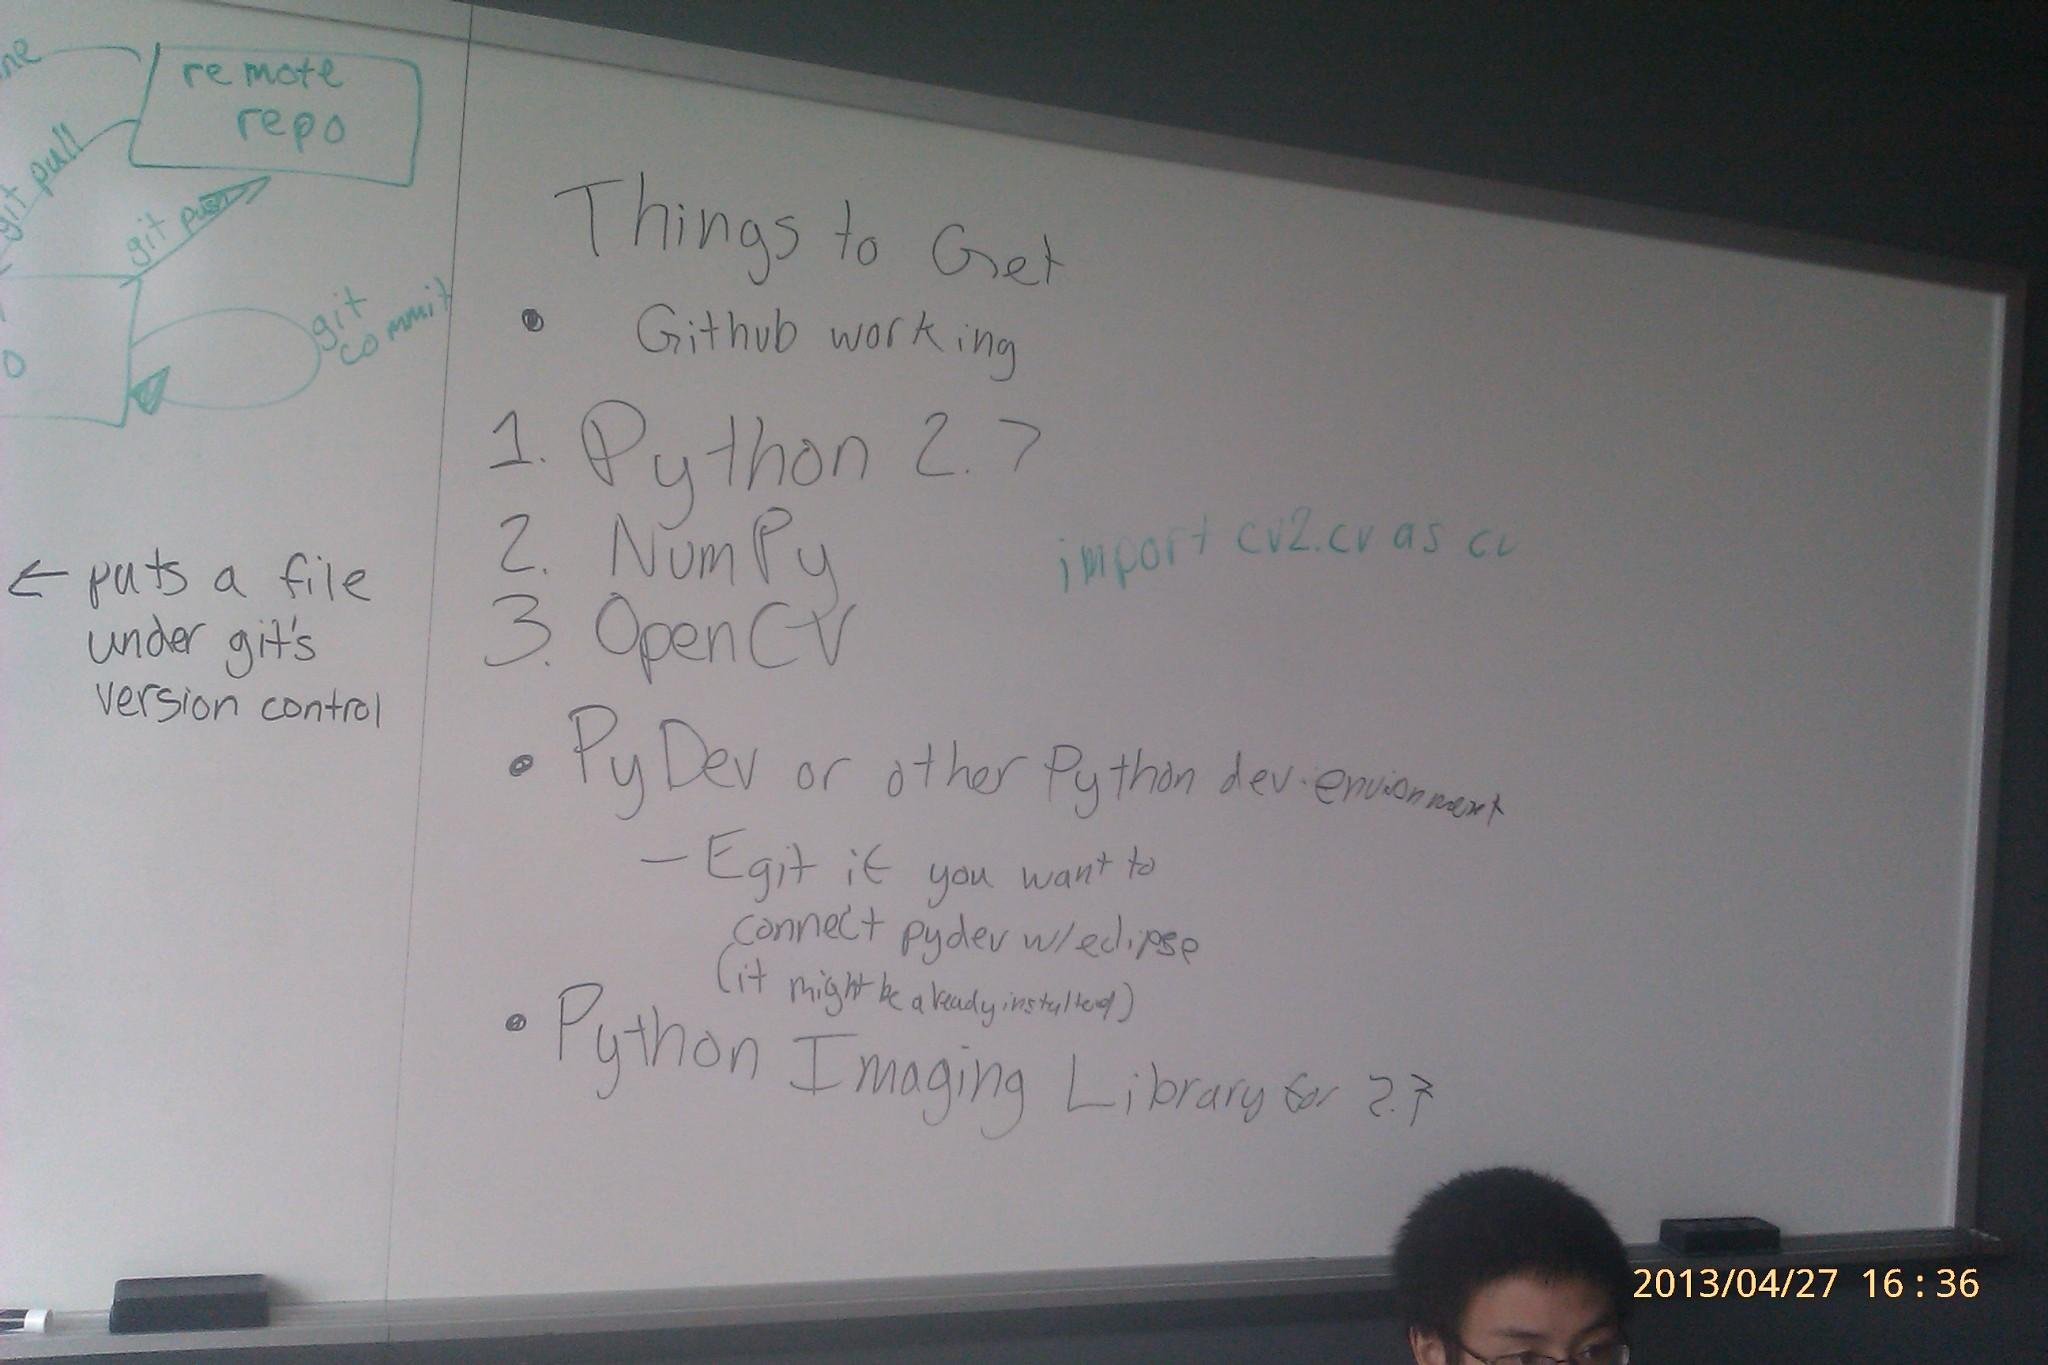 remote
repo
git pull
git push
git
commit
← puts a file
under git's
version control
Things to Get
• Github working
1. Python 2.7
2. NumPy
import cv2.cv as cv
3. OpenCV
• PyDev or other Python dev. envionment
- Egit if you want to
connect pydev w/eclipse
(it might be already installed)
• Python Imaging Library for 2.7
2013/04/27 16:36